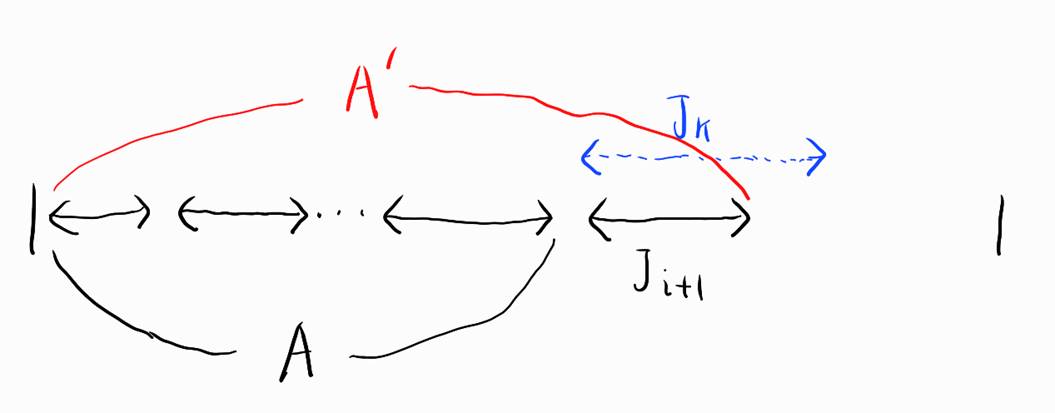 A'
Jk
...
Ji+1
A